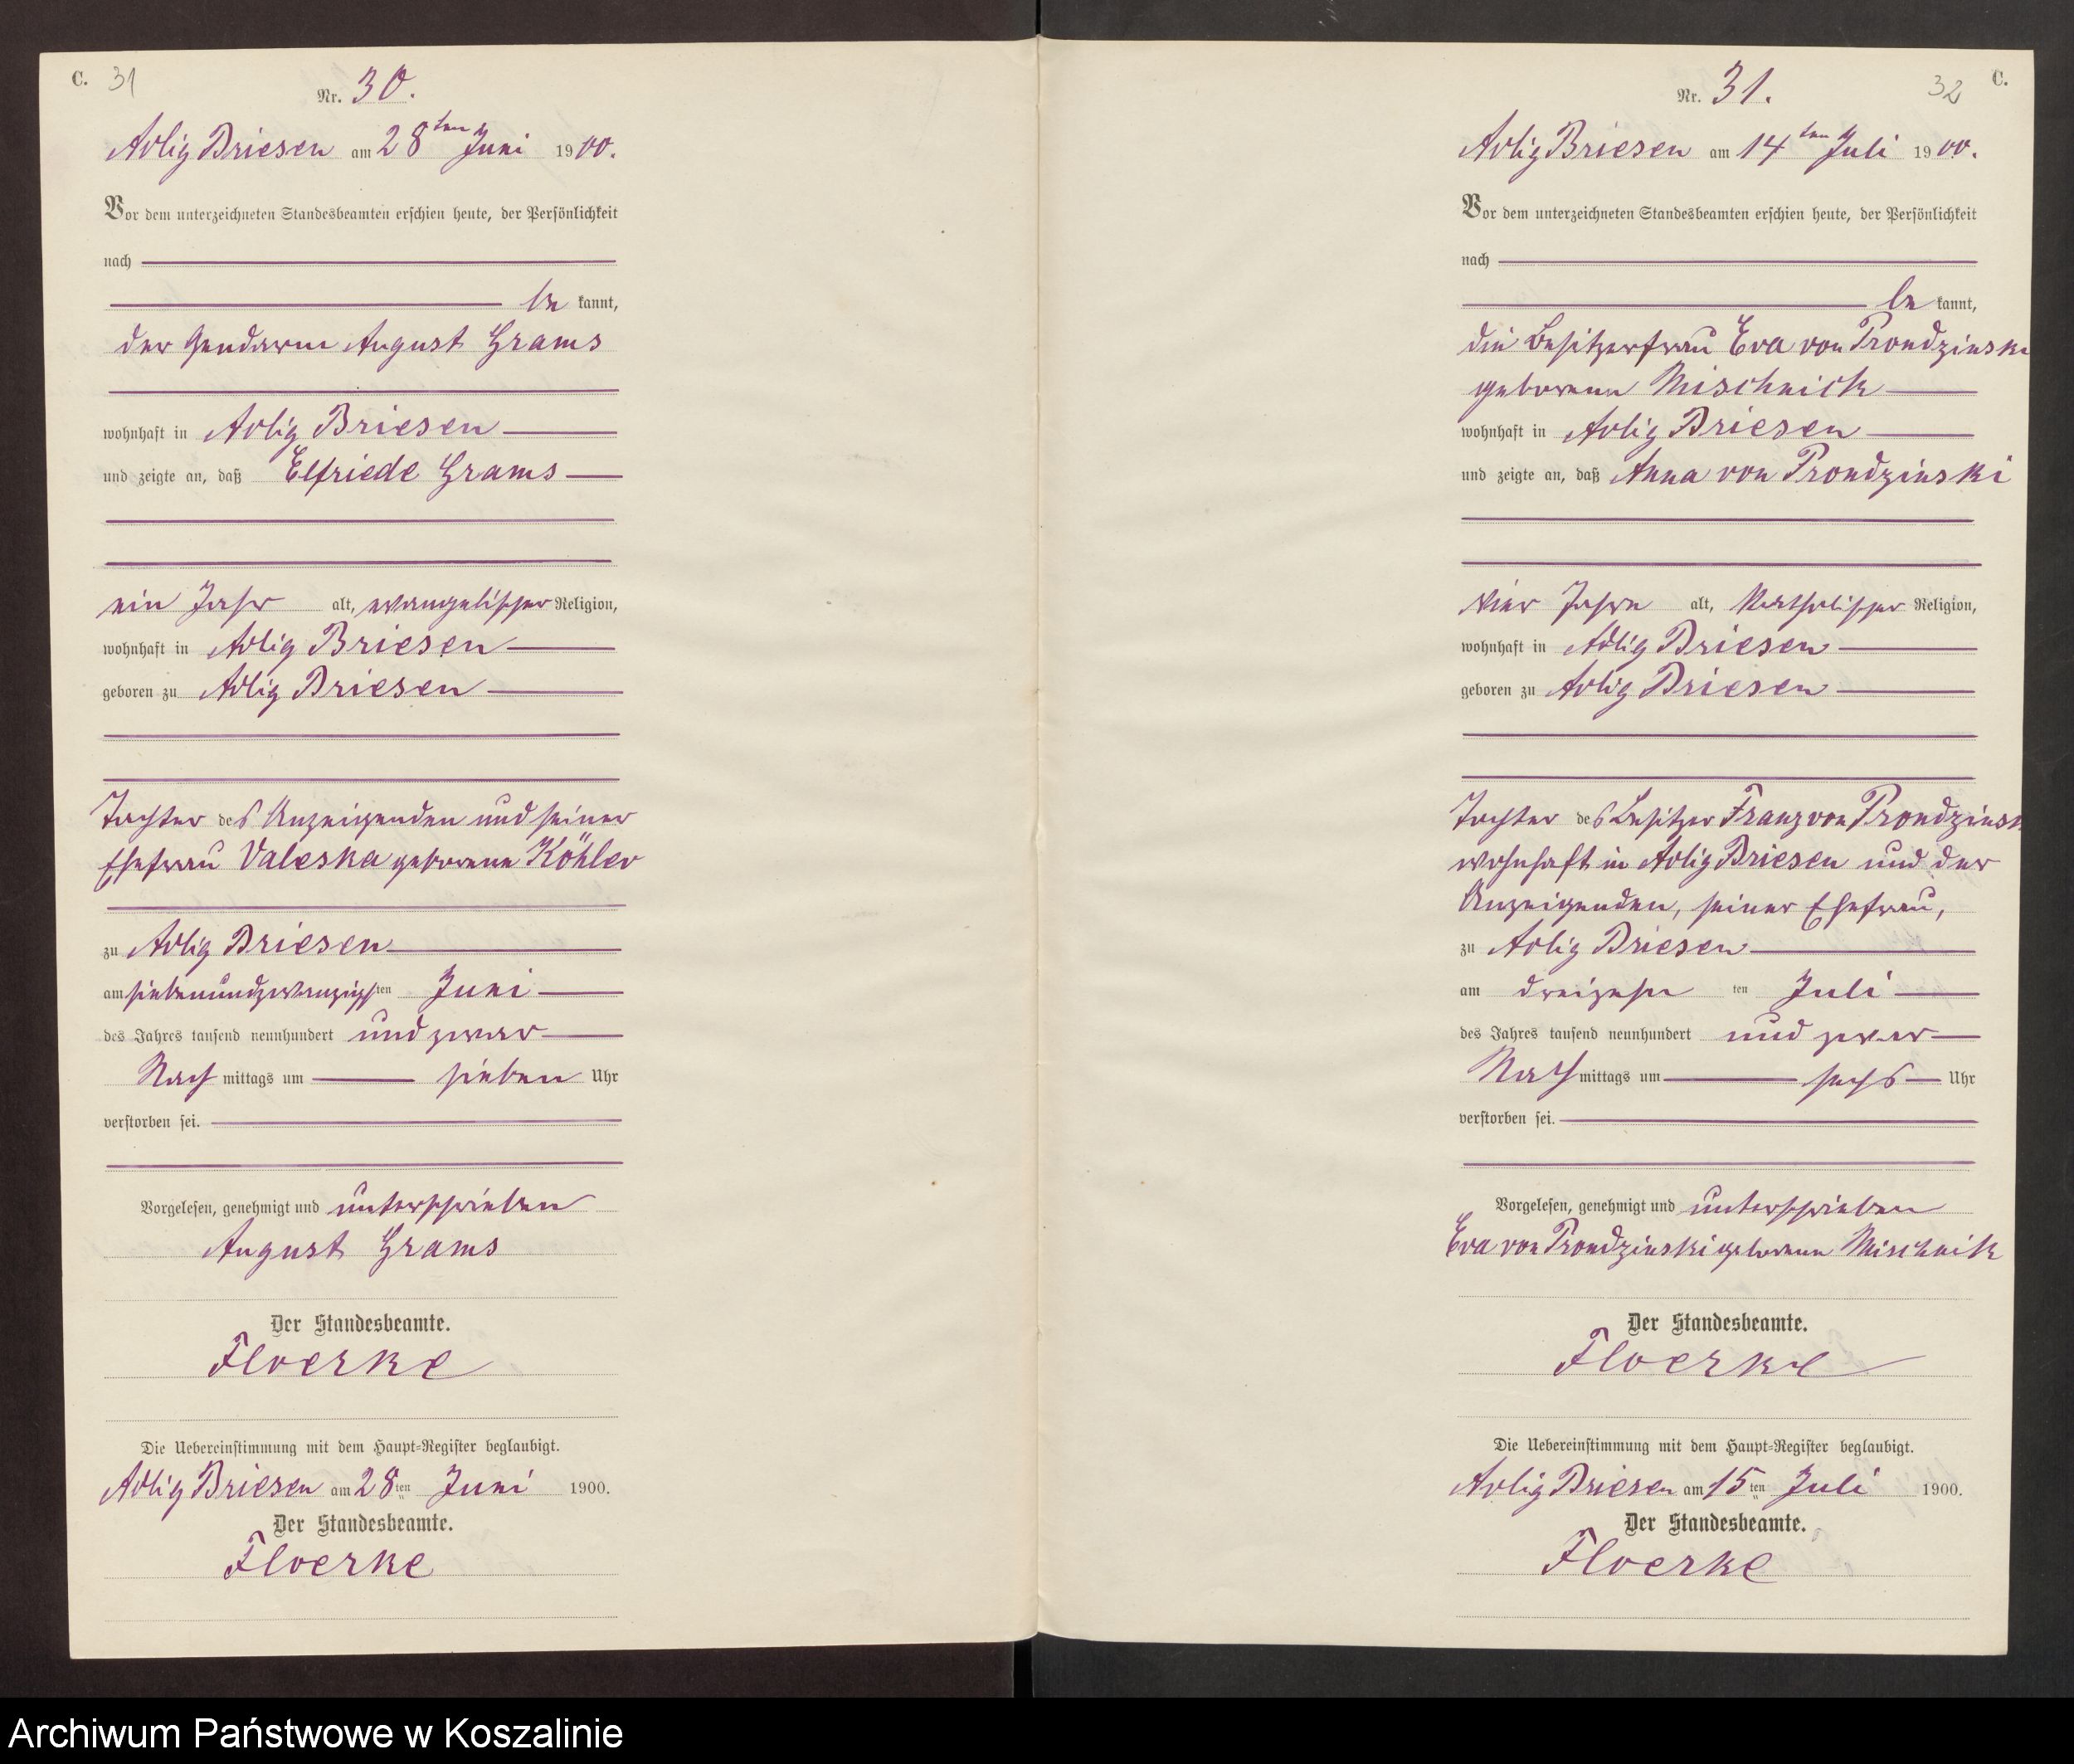 C. 31
Nr. 30.
Adlig Briesen am 28ten Juni 1900.
Vor dem unterzeichneten Standesbeamten erschien heute, der Persönlichkeit
nach
be kannt,
der Gendarm August Grams
wohnhaft in Adlig Briesen
und zeigte an, daß Elfriede Grams
ein Jahr alt, evangelischer Religion,
wohnhaft in Adlig Briesen
geboren zu Adlig Briesen
Tochter des Anzeigenden und seiner
Ehefrau Valeska geborene Köhler
zu Adlig Briesen
am siebenundzwanzigsten Juni
des Jahres tausend neunhundert und zwar
Nach mittags um sieben Uhr
verstorben sei.
Vorgelesen, genehmigt und unterschrieben
August Grams
Der Standesbeamte.
Floerke
Die Uebereinstimmung mit dem Haupt-Register beglaubigt.
Adlig Briesen am 28ten Juni 1900.
Der Standesbeamte.
Floerke
32 C.
Nr. 31.
Adlig Briesen am 14ten Juli 1900.
Vor dem unterzeichneten Standesbeamten erschien heute, der Persönlichkeit
nach
be kannt,
die Besitzerfrau Eva von Prondzinski
geborene Mischnick
wohnhaft in Adlig Briesen
und zeigte an, daß Anna von Prondzinski
vier Jahre alt, katholischer Religion,
wohnhaft in Adlig Briesen
geboren zu Adlig Briesen
Tochter des Besitzer Franz von Prondzinsk
wohnhaft in Adlig Briesen und der
Anzeigenden, seiner Ehefrau,
zu Adlig Briesen
am dreizehn ten Juli
des Jahres tausend neunhundert und zwar
Nach mittags um sechs Uhr
verstorben sei.
Vorgelesen, genehmigt und unterschrieben
Eva von Prondzinski geborene Mischnik
Der Standesbeamte.
Floerke
Die Uebereinstimmung mit dem Haupt-Register beglaubigt.
Adlig Briesen am 15ten Juli 1900.
Der Standesbeamte.
Floerke
Archiwum Państwowe w Koszalinie